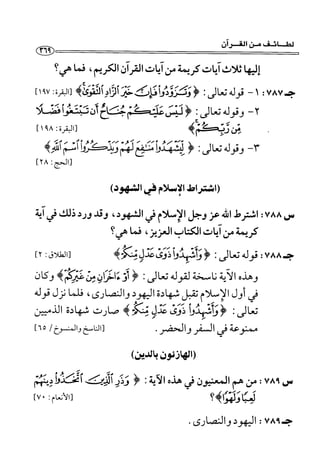 لطائف من القرآن
٣٦٩
إليها ثلاث آيات كريمة من آيات القرآن الكريم، فما هي؟
جـ ٧٨٧: ١- قوله تعالى: ﴿وَتَزَوَّدُوا فَإِنَّ خَيْرَ الزَّادِ التَّقْوَىٰ﴾ [البقرة: ١٩٧]
٢- وقوله تعالى: ﴿لَيْسَ عَلَيْكُمْ جُنَاحٌ أَن تَبْتَغُوا فَضْلًا
مِّن رَّبِّكُمْ﴾ [البقرة: ١٩٨]
٣- وقوله تعالى: ﴿لِيَشْهَدُوا مَنَافِعَ لَهُمْ وَيَذْكُرُوا اسْمَ اللَّهِ﴾
[الحج: ٢٨]
(اشتراط الإسلام في الشهود)
س ٧٨٨: اشترط الله عز وجل الإسلام في الشهود، وقد ورد ذلك في آية
كريمة من آيات الكتاب العزيز، فما هي؟
جـ ٧٨٨: قوله تعالى: ﴿وَأَشْهِدُوا ذَوَيْ عَدْلٍ مِّنكُمْ﴾ [الطلاق: ٢]
وهذه الآية ناسخة لقوله تعالى: ﴿أَوْ ءَاخَرَانِ مِنْ غَيْرِكُمْ﴾ وكان
في أول الإسلام تقبل شهادة اليهود والنصارى، فلما نزل قوله
تعالى: ﴿وَأَشْهِدُوا ذَوَيْ عَدْلٍ مِّنكُمْ﴾ صارت شهادة الذميين
ممنوعة في السفر والحضر. [الناسخ والمنسوخ/ ٦٥]
(الهازئون بالدين)
س ٧٨٩: من هم المعنيون في هذه الآية: ﴿وَذَرِ الَّذِينَ اتَّخَذُوا دِينَهُمْ
لَعِبًا وَلَهْوًا﴾؟ [الأنعام: ٧٠]
جـ ٧٨٩: اليهود والنصارى.